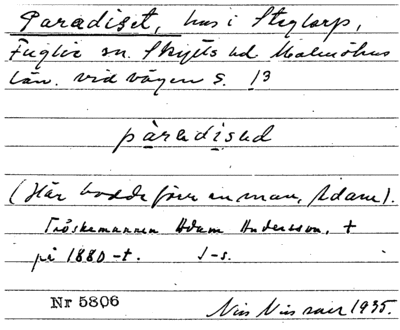 Paradiset, hus i Steglarp,
Fuglie sn. Skytts hd Malmöhus
län. vid vägen S. 13
pàradisəd
(Här bodde förr en man, Adam).
Tröskemannen Adam Andersson, †
på 1880-t. J-s.
Nr 5806
Nils Nilsson 1935.